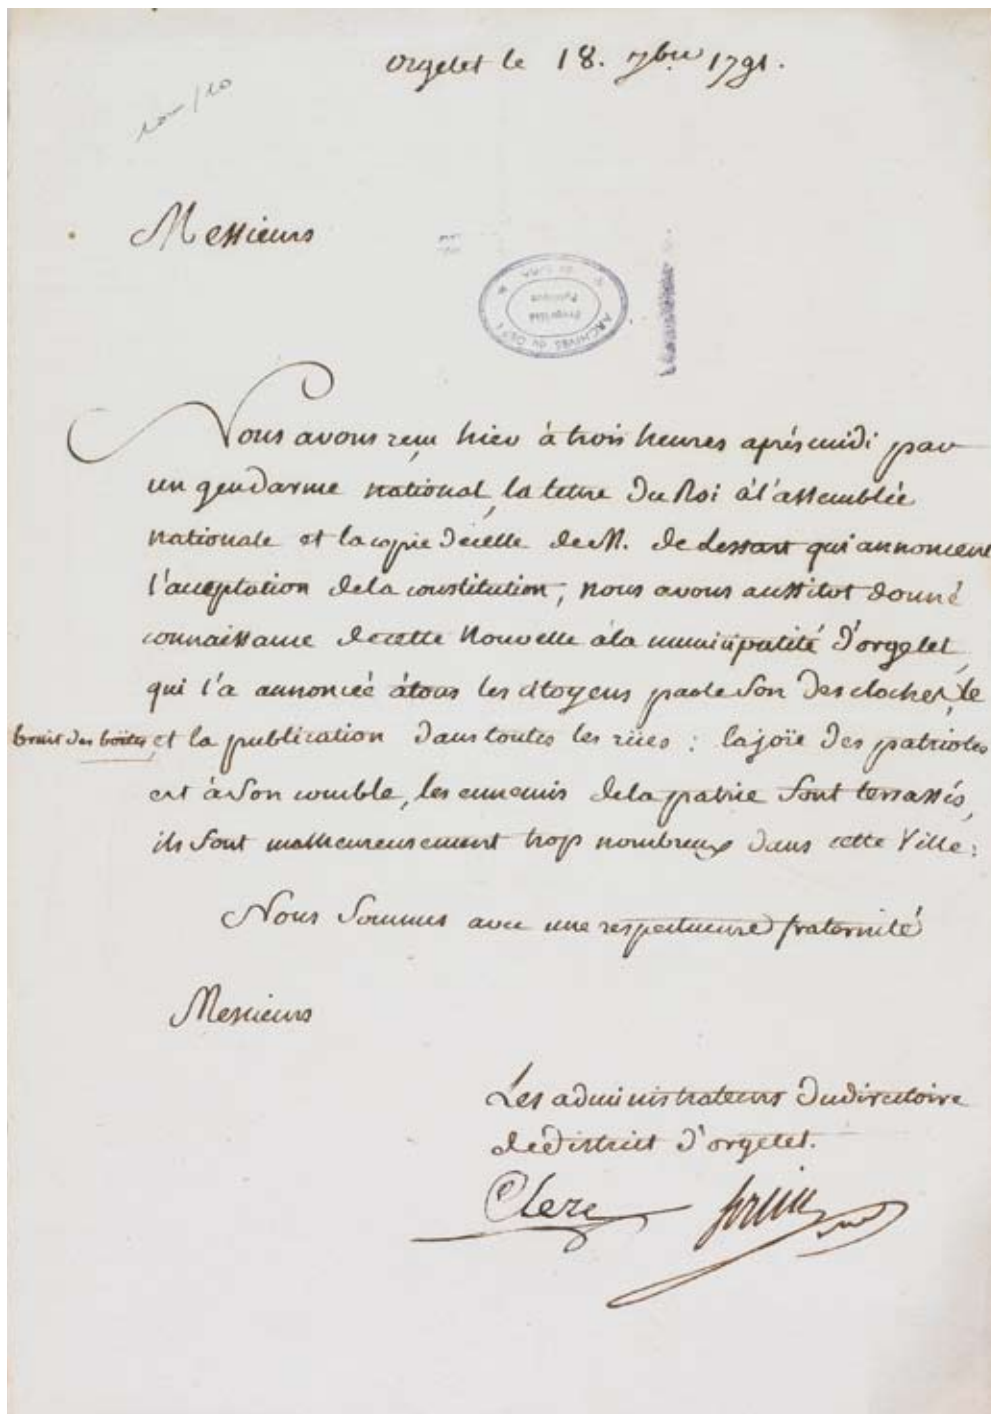 orgelet le 18. 7bre 1791.
Messieurs
ARCHIVES du DEPT
du JURA
Propriété
Publique
Nous avons reçu hier à trois heures après midi par
un gendarme national, la lettre du Roi à l'assemblée
nationale et la copie de celle de M. de Lessart qui annoncent
l'acceptation de la constitution, nous avons aussitot donné
connaissance de cette nouvelle à la municipalité d'orgelet,
qui l'a annoncée à tous les citoyens par le son des cloches, le
bruit des boëtes, et la publication dans toutes les rües : la joïe des patriotes
est à son comble, les ennemis de la patrie sont terrassés,
ils sont malheureusement trop nombreux dans cette Ville :
Nous sommes avec une respectueuse fraternité
Messieurs
Les administrateurs du directoire
de district d'orgelet.
Clerc